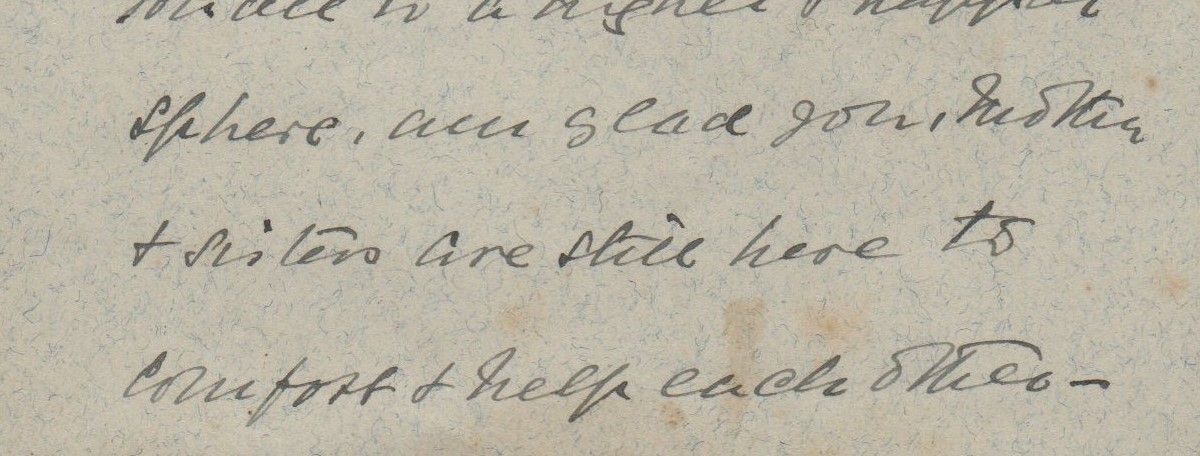 to a higher & happier
sphere, am glad you, Mother
& sisters are still here to
comfort & help each other –